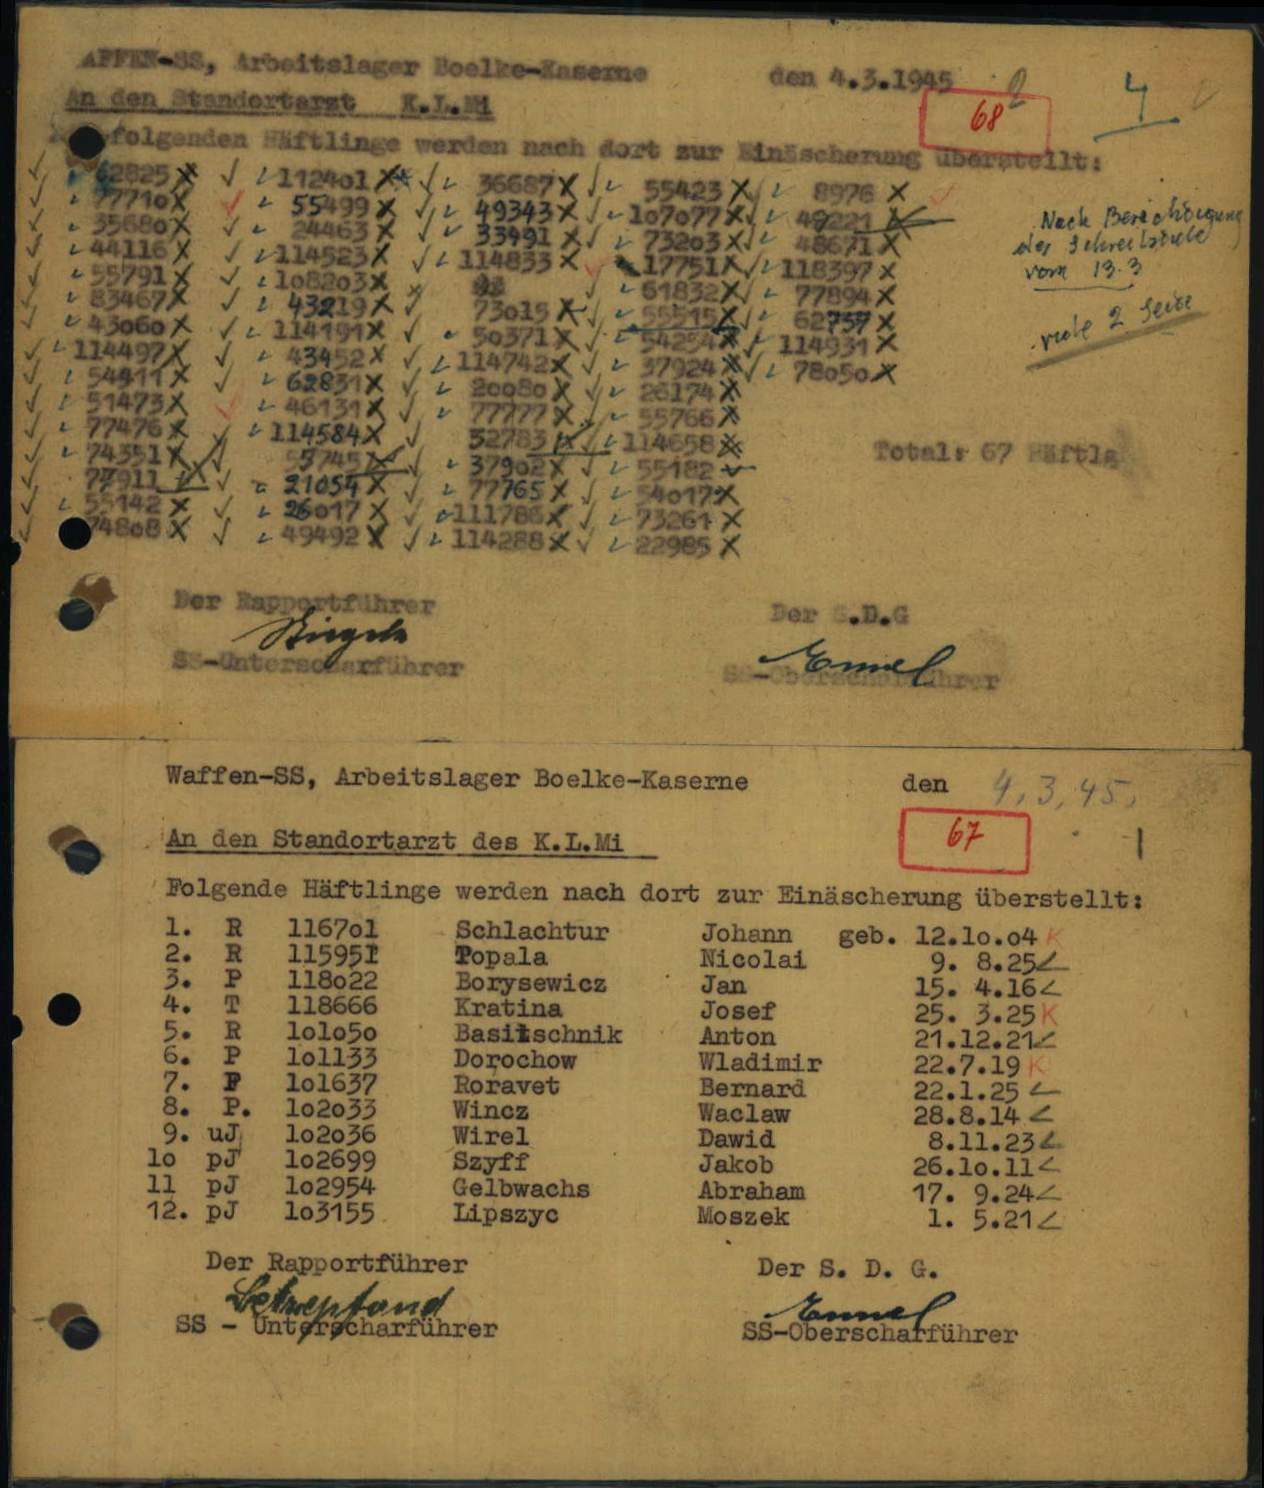 AFFEN-SS, Arbeitslager Boelke-Kaserne den 4.3.1945
2 4
An den Standortarzt K.L.Mi
68
folgenden Häftlinge werden nach dort zur Einäscherung überstellt:
62825 112401 36687 55423 8976
77710 55499 49343 107077 49221
35680 24463 33491 73203 48671
44116 114523 114833 17751 118397
55791 108203 61832 77894
83467 43219 73015 55515 62757
43060 114191 50371 54254 114931
114497 43452 114742 37924 78050
54911 62831 20080 26174
51473 46131 77777 55766
77476 114584 52783 114658
74351 55745 37902 55182
77911 21054 77765 54017
55142 26017 111786 73261
74808 49492 114288 22985
Nach Berichtigung
der Schreibstube
vom 13.3
2 Seite
Total: 67 Häftlg
Der Rapportführer Der S.D.G
SS-Unterscharführer SS-Oberscharführer
Waffen-SS, Arbeitslager Boelke-Kaserne den 4,3,45,
67 1
An den Standortarzt des K.L.Mi
Folgende Häftlinge werden nach dort zur Einäscherung überstellt:
1. R 1167o1 Schlachtur Johann geb. 12.1o.o4 K
2. R 115951 Topala Nicolai 9. 8.25
3. P 118o22 Borysewicz Jan 15. 4.16
4. T 118666 Kratina Josef 25. 3.25 K
5. R 1o1o5o Basitschnik Anton 21.12.21
6. P 1o1133 Dorochow Wladimir 22.7.19 K
7. F 1o1637 Roravet Bernard 22.1.25
8. P. 1o2o33 Wincz Waclaw 28.8.14
9. uJ 1o2o36 Wirel Dawid 8.11.23
1o pJ 1o2699 Szyff Jakob 26.1o.11
11 pJ 1o2954 Gelbwachs Abraham 17. 9.24
12. pJ 1o3155 Lipszyc Moszek 1. 5.21
Der Rapportführer Der S. D. G.
SS - Unterscharführer SS-Oberscharführer